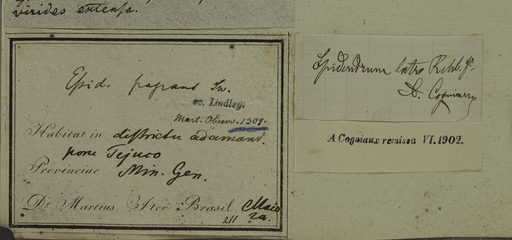 Virides extensa.
Epid. fragrans Sw.
sec. Lindley.
Mart. Observ. 1309.
Habitat in districtu adamant.
pone Tejuco
Provinciae Min. Gen.
De Martius Iter Brasil. Maio
211
Epidendrum latro Rchb. f.
A. Cogniaux
A Cogniaux remissa VI, 1902.